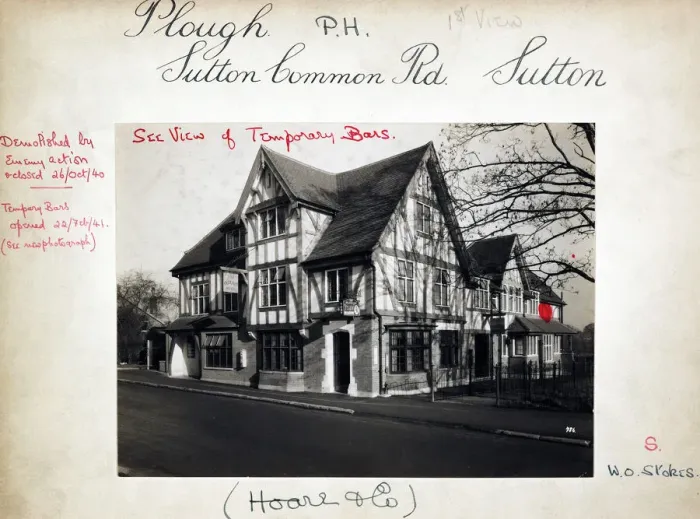 Plough. P.H. 1st View
Sutton Common Rd. Sutton
Demolished by
Enemy action
closed 26/Oct/40
Tempory Bars
opened 22/Feb/41.
(See new photograph)
See View of Temporary Bars.
986
S.
W.O. Stokes.
(Hoare & Co)